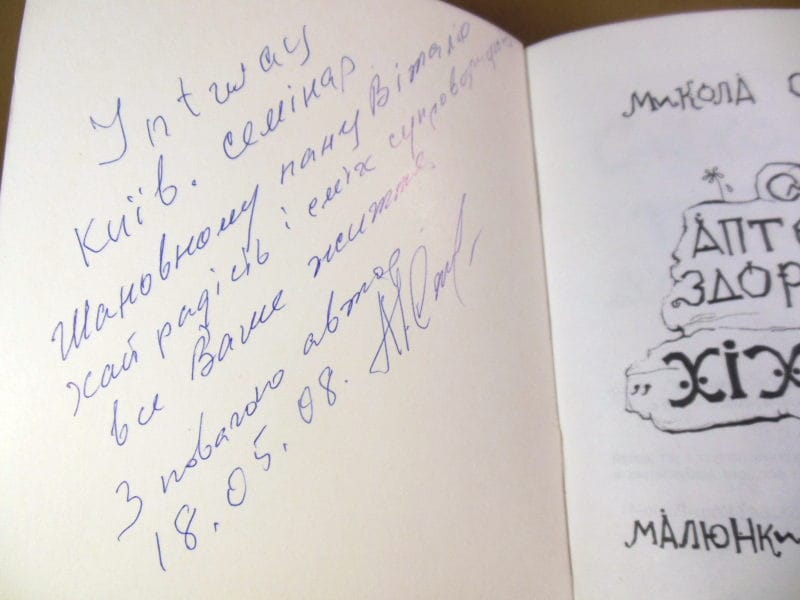 Intway
Київ. семінар
Шановному пану Віталію
хай радість і сміх супроводжують
все Ваше життя.
З повагою автор
18.05.08.
Микола
АПТ
ЗДОР
„ХІХ
МАЛЮНКИ